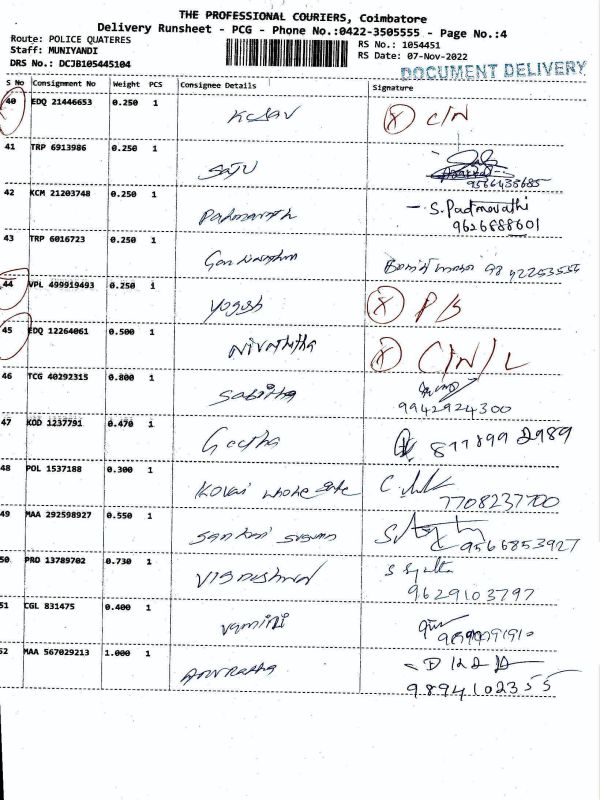 THE PROFESSIONAL COURIERS, Coimbatore
Delivery Runsheet - PCG - Phone No.:0422-3505555 - Page No.:4
Route: POLICE QUATERES
RS No.: 1054451
Staff: MUNIYANDI
RS Date: 07-Nov-2022
DRS No.: DCJB105445104
DOCUMENT DELIVERY
S No Consignment No Weight PCS Consignee Details Signature
40 EDQ 21446653 0.250 1
(X) C/N
41 TRP 6913986 0.250 1
Saju
9566438685
42 KCM 21203748 0.250 1
Padmavath
- S. Padmavathi
9626888601
43 TRP 6016723 0.250 1
9842253555
44 VPL 499919493 0.250 1
Yogesh (X) P/B
45 EDQ 12264061 0.500 1
Nivathitha (X) C/N/L
46 TCG 40292315 0.800 1
Sabitha
9942924300
47 KOD 1237791 0.470 1
Geetha 877899 2989
48 POL 1537188 0.300 1
Kovai whole sale
7708237700
49 MAA 292598927 0.550 1
9566853927
50 PRO 13789702 0.730 1
9629103797
51 CGL 831475 0.400 1
Yamini
52 MAA 567029213 1.000 1
Anuradha
9894102355